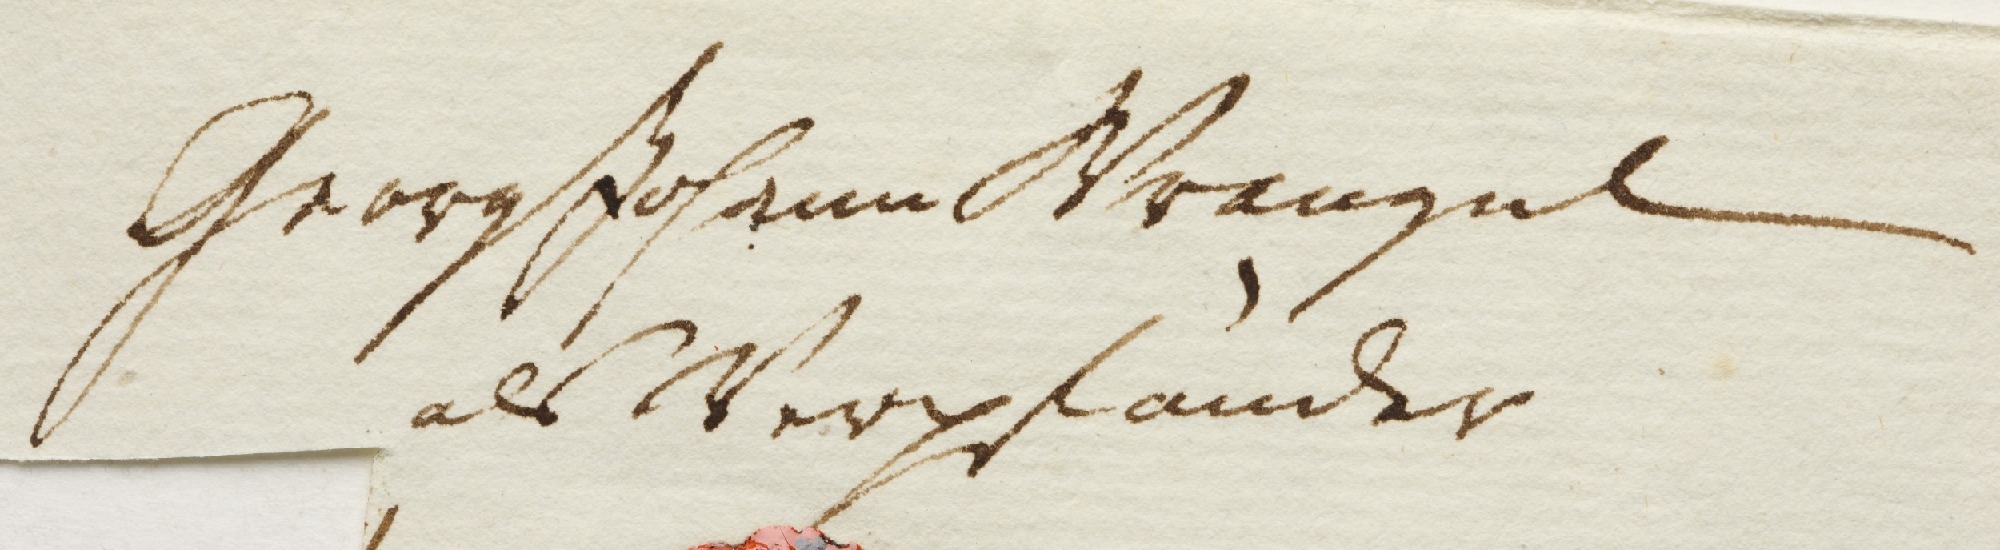 Georg Johann Wrangel
als Verpfänder